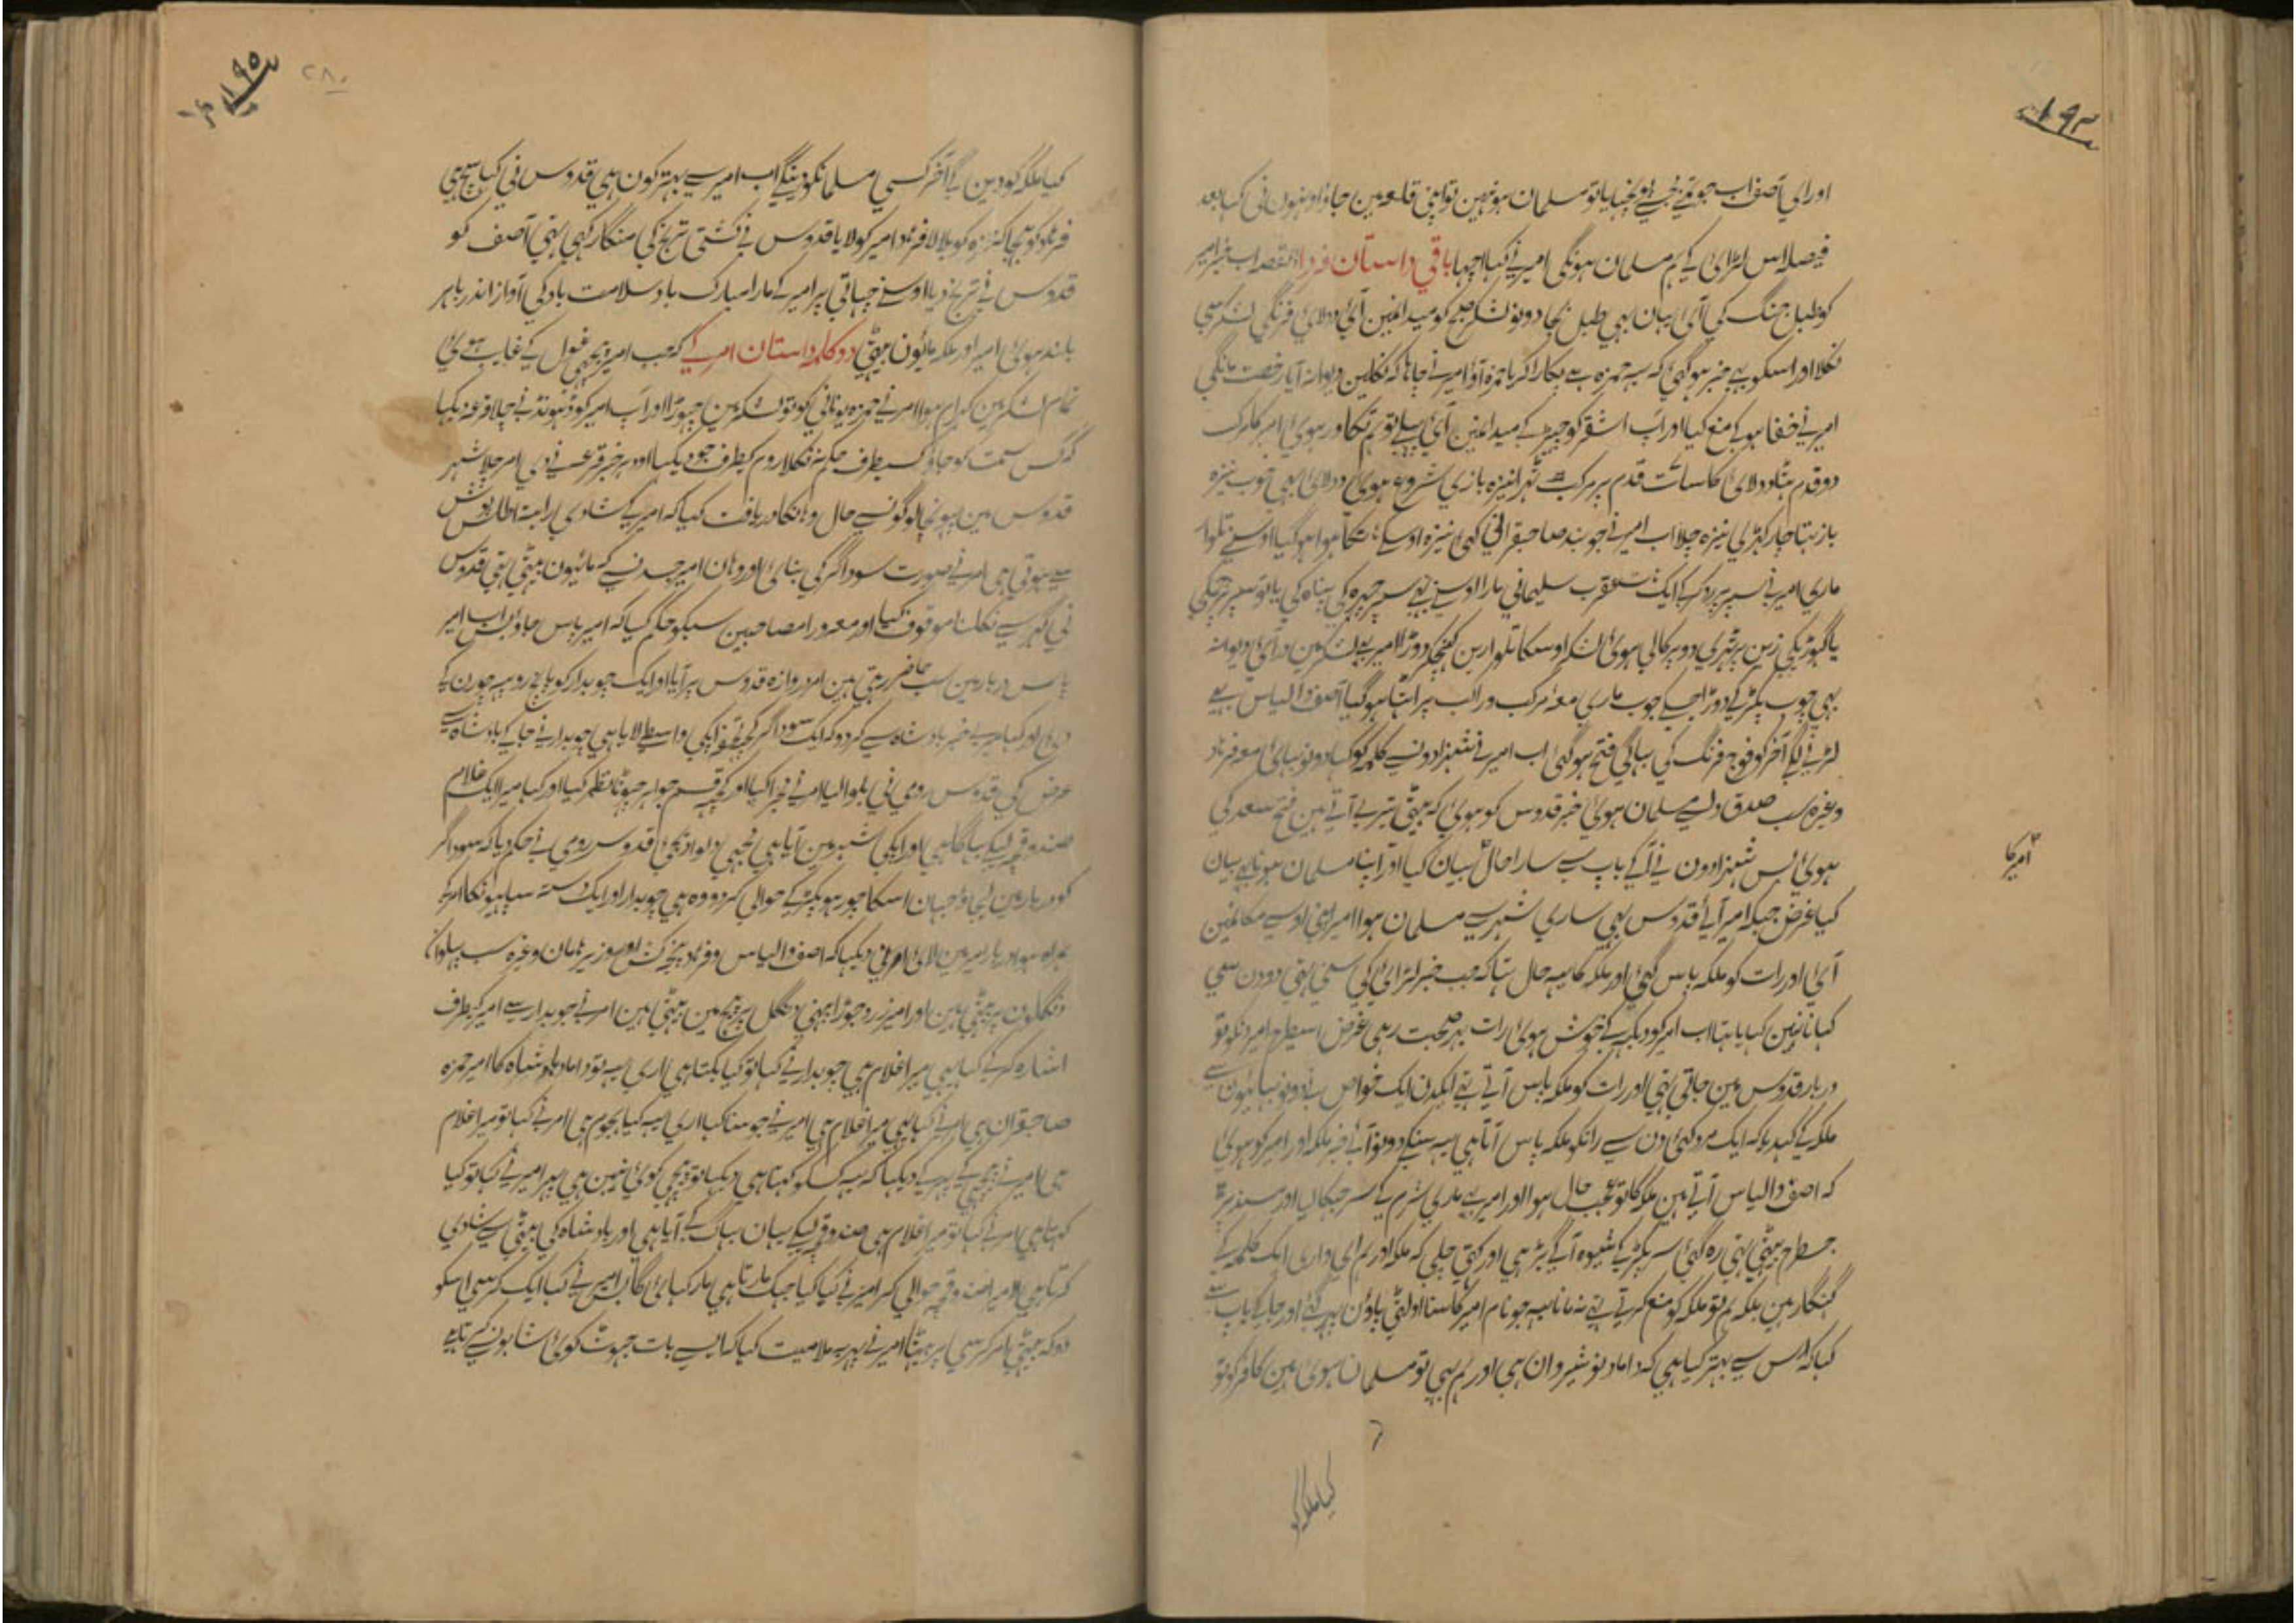 ۱۹۴
اور ای آصف اب جو تمنے مجھے پہچنایا تو مسلمان ہو نہین تو اپنی قلعہ مین جاؤ اونہون نی کہا بعد
فیصلہ اس لڑائی کے ہم مسلمان ہونگی امیر نے کہا اچہا باقی داستان فردا القصہ اب خبر امیر
کو طبل جنگ کی آئی یہان بہی طبل بجا دونو لشکر صبح کو میدانمین آئی دولائی فرنگی لشکر سی
نکلا اور اسکو بہی خبر ہوگئی کہ یہ حمزہ ہے پکارا کہ یا حمزہ آؤ امیر نے چاہا کہ نکلین دیوانہ آیا رخصت مانگی
امیر نے خفا ہو کے منع کیا اور آپ اشقر کو چہیڑ کے میدانمین آئی پہلے تو ہم تکاور ہوئی امیر کا مرکب
دو قدم ہٹا دولائی کا سات قدم پر مرکب ٹہرا نیزہ بازی شروع ہوئی دولائی بہی خوب نیزہ
باز تہا چار کہڑی نیزہ چلا اب امیر نے جو بند صاحبقرانی کہی نیزہ اوسکے ہاتھ کا ہوا ہو گیا اوسنے تلوار
ماری امیر نے سپر پر روک کے ایک عقرب سلیمانی مارا اوسنے بہی سپر چہرہ کی پناہ کی یا تو سپر پر چمکی
یا گہوڑیکی زین پر ٹہری دو پرکالی ہوئی لشکر اوسکا تلوارین کہنچکر دوڑا امیر بہی لشکر مین در آئی دیوانہ
بہی چوب پکڑ کے دوڑا جسکے چوب ماری معہ مرکب وراکب پراٹہا ہو گیا آصف والیاس بہی
لڑنے لگے آخر کو فوج فرنگ کی بہاگی فتح ہوگئی اب امیر نے شہزادونسے کلمہ کو کہا دونو بہائی معہ فرہاد
وغیرہ سب صدق دلسے مسلمان ہوئی خبر قدوس کو ہوئی کہ بیٹی تیرے آتے ہین فتح سعد کی
ہوئی پس شہزادون نے آکے باپ سے سارا حال بیان کیا اور اپنا مسلمان ہونا بہی بیان
امیر کا
کیا غرض جبکہ امیر آئے قدوس بہی ساری شہر سے مسلمان ہوا امیر اپنی اوسی مکانمین
آئی اور رات کو ملکہ پاس گئی اور ملکہ کا یہ حال تہا کہ جب خبر لڑائی کی سنی تہی دو دن سی
کہانا نہین کہایا تہا اب امیر کو دیکہ کے خوش ہوئی رات بہر صحبت رہی غرض اسیطرح امیر دنکو تو
دربار قدوس مین جاتی تہی اور رات کو ملکہ پاس آتے تہے ایکدن ایک خواص نے دونو بہائیون سے
ملکہ کے کہدیا کہ ایک مرد کئی دن سے راتکو ملکہ پاس آتا ہی یہ سنکے دونو آئے خبر ملکہ اور امیر کو ہوئی
کہ آصف والیاس آتے ہین ملکہ کا تو عجب حال ہوا اور امیر بہی ماری شرم کے سر جہکا لیا اور مسند پر
جسطرح بیٹہی تہی رہ گئی سر پکڑ کے شیوہ آگے بڑہی اور کہتی چلی کہ ملکہ اور ہم ای داری ایک کلمہ کے
گنہگار ہین بلکہ ہم تو ملکہ کو منع کرتے تہے نہ مانا یہ جو نام امیر کا سنا اولٹی پاؤن پہر گئے اور جا کے باپ سے
کہا کہ اس سے بہتر کیا ہی کہ داماد نوشیروان ہی اور ہم بہی تو مسلمان ہوئی ہین کافر کو تو
کیا ملکہ کو
۱۹۵
۲۸۰
کیا ملکہ کو دین گے آخر کسی مسلمانکو دینگے اب امیر سے بہتر کون ہی قدوس نی کہا سچ ہی
فرہاد کو بہیجا کہ حمزہ کو بلا لا فرہاد امیر کو لایا قدوس نے کشتی ترنج کی منگا رکہی تہی آصف کو
قدوس نے ترنج دیا اوسنے چہاتی پر امیر کے مارا مبارک باد سلامت باد کی آواز اندر باہر
بلند ہوئی امیر اور ملکہ مائیون بیٹہی دو کلمہ داستان امر کے کہ جب امیر پنجہ غول کے غایب ہوئی
تمام لشکر مین کہرام ہوا امر نے حمزہ یونانی کو تو لشکر مین چہوڑا اور آپ امیر کو ڈہونڈنے چلا قرعہ دیکہا
کہ کس سمت کو جاؤن کسیطرف حکم نہ نکلا روم کیطرف جو دیکہا اودہر خبر قرعے نے دی امر چلا شہر
قدوس مین پہونچا لوگونسے حال وہانکا دریافت کیا کہ امیر کی شادی رابعہ اطلس پوش
سے ہوتی ہی امر نے صورت سوداگر کی بنائی اور وہان امیر جسدنسے کہ مائیون بیٹہی تہی قدوس
نی گہر سے نکلنا موقوف کیا اور معرور امصاحبین سبکو حکم کیا کہ امیر پاس جاؤ پس اب امیر
پاس دربار مین سب حاضر رہتی ہین امر دروازہ قدوس پر آیا اور ایک چوبدار کو پانچ روپیہ چورن کے
دئی اور کہا میرے خبر بادشاہ سے کر دو کہ ایک سوداگر کچہ تحفہ آپکی واسطے لایا ہی چوبدار نے جا کے بادشاہ سے
عرض کی قدوس رومی نی بلوا لیا امر نے مجرا کیا اور کچہ قسم جواہر جہوٹا نظر کیا اور کہا میرا ایک غلام
صندوقچہ لیکے بہاگا ہی اور آپکی شہر مین آیا ہی مجہی دلوا دیجئی قدوس رومی نے حکم دیا کہ سوداگر
کو دربار مین لی جاؤ جہان اسکا چور ہو پکڑ کے حوالی کر دو وہ ہی چوبدار اور ایک دستہ سپاہیونکا امر کے
ہمراہ ہوا دربار امیر مین لائی امر نی دیکہا کہ آصف والیاس وفرہاد پنجہ کش اور وزیر ہامان وغیرہ سب پہلوان
دنگلون پر بیٹہی ہین اور امیر زرد جوڑا پہنی دنگل پر بیچ مین بیٹہی ہین امر نے چوبدار سے امیر کیطرف
اشارہ کر کے کہا یہی میرا غلام ہی چوبدار نے کہا تو کیا بکتا ہی اری یہ تو داماد بادشاہ کا امیر حمزہ
صاحبقران ہی امر نے کہا یہی میرا غلام ہی امیر نے جو سنا کہا اری یہ کیا ہجوم ہی امر نے کہا تو میرا غلام
ہی امیر نے پیچہے پہر کے دیکہا کہ یہ کسکو کہتا ہی دیکہا تو پیچہی کوئی نہین ہی پہر امیر نے کہا تو کیا
کہتا ہی امر نے کہا تو میرا غلام ہی صندوقچہ لیکے یہان بہاگ کے آیا ہی اور بادشاہ کی بیٹی سے شادی
کرتا ہی لا میرا صندوقچہ حوالی کر امیر نے کہا کیا جہک مارتا ہی مار کہائی گا پس امیر نے کہا ایک کرسی اسکو
دو کہ بیٹہی امر کرسی پر بیٹہا امیر نے پہر بہ ملامیت کہا کہ ایسے بات جہوٹ کوئی اشنا بونسے کہتا ہے